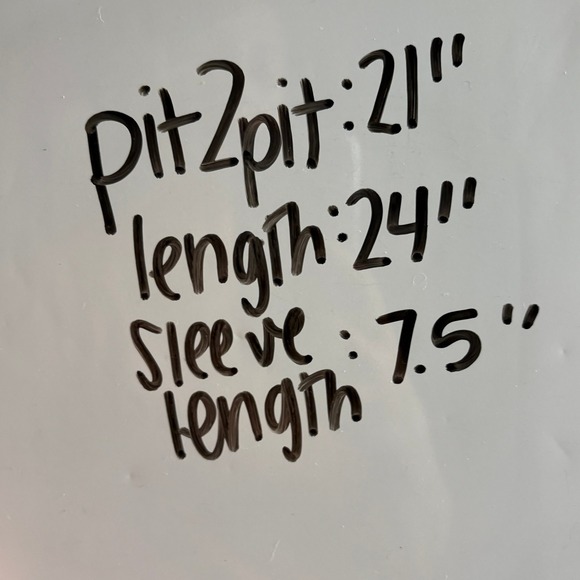 pit2pit: 21"
length: 24"
sleeve : 7.5"
length